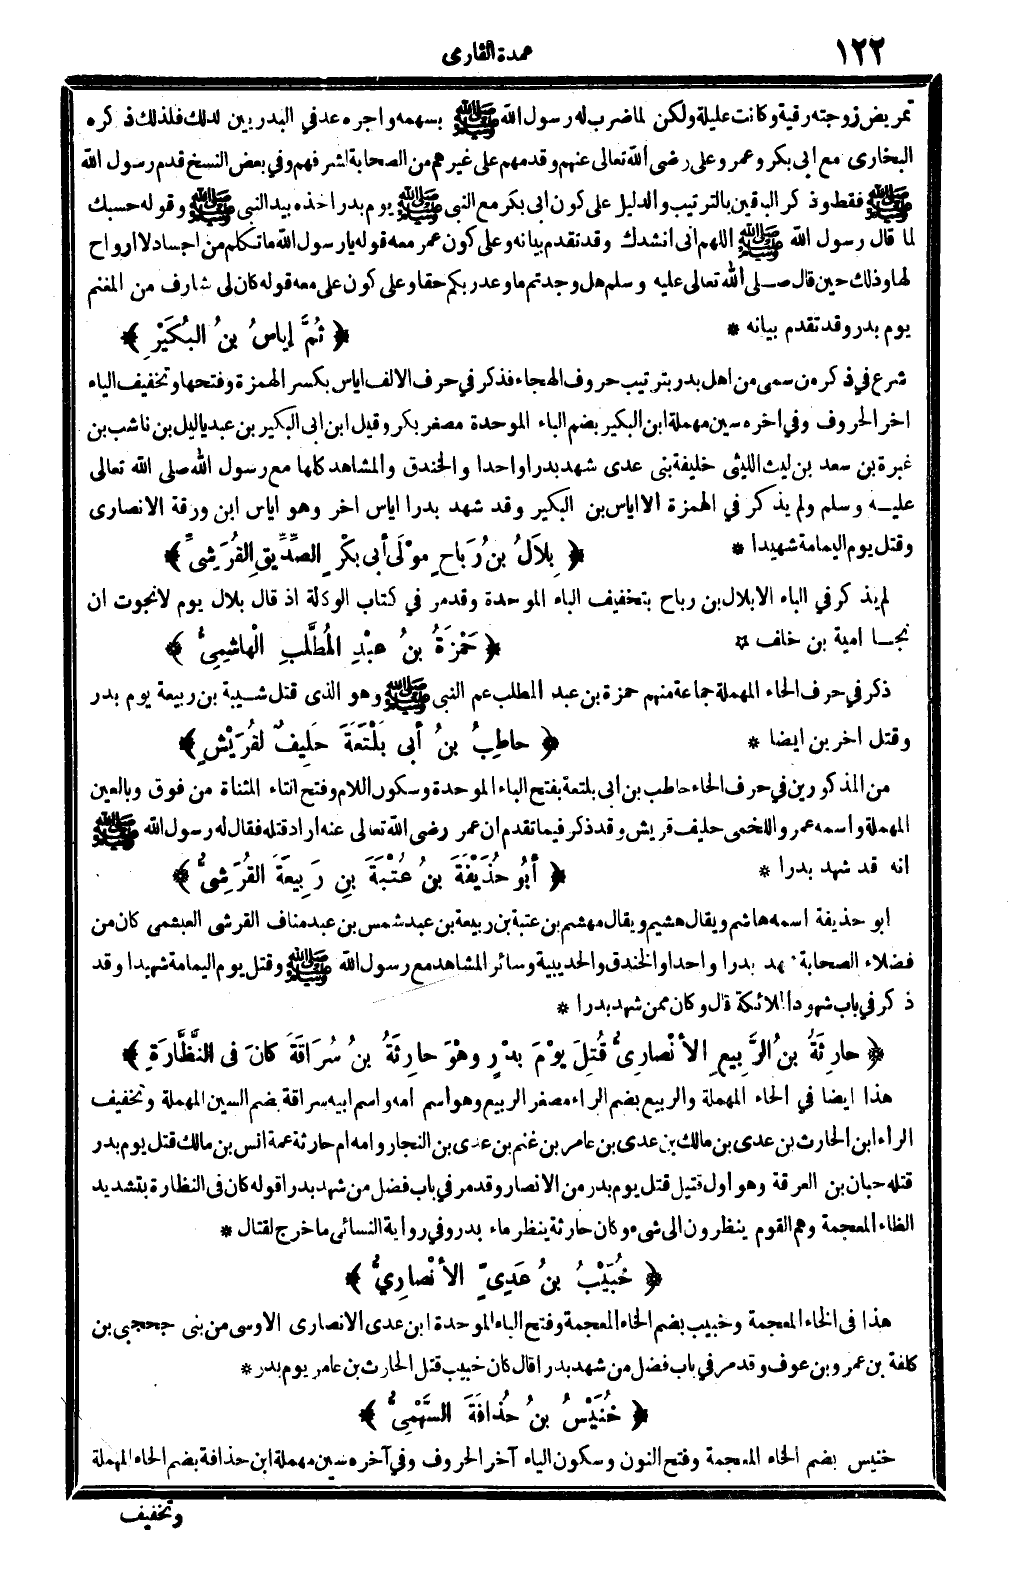 ١٢٢
عمدة القارى
تمريض زوجته رقية وكانت عليلة ولكن لما ضرب له رسول الله ﷺ بسهمه واجره عد في البدريين لذلك فلذلك ذكره
البخارى مع ابى بكر وعمر وعلى رضى الله تعالى عنهم وقدمهم على غيرهم من الصحابة لشرفهم وفي بعض النسخ قدم رسول الله
ﷺ فقط وذكر الباقين بالترتيب والدليل على كون ابى بكر مع النبى ﷺ يوم بدر اخذه بيد النبى ﷺ وقوله حسبك
لما قال رسول الله ﷺ اللهم انى انشدك وقد تقدم بيانه وعلى كون عمر معه قوله يارسول الله ما تكلم من اجساد لا ارواح
لها وذلك حين قال صلى الله تعالى عليه وسلم هل وجدتم ما وعد ربكم حقا وعلى كون على معه قوله كان لى شارف من المغنم
يوم بدر وقد تقدم بيانه *
﴿ ثُمَّ إياسُ بنُ البُكَيْرِ ﴾
شرع في ذكر من سمى من اهل بدر بترتيب حروف الهجاء فذكر في حرف الالف اياس بكسر الهمزة وفتحها وتخفيف الياء
اخر الحروف وفي اخره سين مهملة ابن البكير بضم الباء الموحدة مصغر بكر وقيل ابن ابى البكير بن عبد ياليل بن ناشب بن
غبرة بن سعد بن ليث الليثى خليفة بنى عدى شهد بدرا واحدا والخندق والمشاهد كلها مع رسول الله صلى الله تعالى
عليه وسلم ولم يذكر في الهمزة الا اياس بن البكير وقد شهد بدرا اياس اخر وهو اياس ابن ورقة الانصارى
وقتل يوم اليمامة شهيدا *
﴿ بِلاَلُ بنُ رَباحٍ مَوْلَى أبى بكْرٍ الصِّدِّيقِ القُرَشِىِّ ﴾
لم يذكر في الباء الا بلال بن رباح بتخفيف الباء الموحدة وقد مر في كتاب الوكالة اذ قال بلال يوم لانجوت ان
نجا امية بن خلف *
﴿ حَمْزَةُ بنُ عبْدِ المُطَّلِبِ الْهاشِمِىُّ ﴾
ذكر في حرف الحاء المهملة جماعة منهم حمزة بن عبد المطلب عم النبى ﷺ وهو الذى قتل شيبة بن ربيعة يوم بدر
وقتل اخرين ايضا *
﴿ حاطِبُ بنُ أبى بَلْتَعَةَ حَلِيفٌ لقُرَيْشٍ ﴾
من المذكورين في حرف الحاء حاطب بن ابى بلتعة بفتح الباء الموحدة وسكون اللام وفتح التاء المثناة من فوق وبالعين
المهملة واسمه عمرو اللخمى حليف قريش وقد ذكر فيما تقدم ان عمر رضى الله تعالى عنه اراد قتله فقال له رسول الله ﷺ
انه قد شهد بدرا *
﴿ أبُو حُذَيْفَةَ بنُ عُتْبَةَ بنِ رَبِيعَةَ القُرَشِىُّ ﴾
ابو حذيفة اسمه هاشم ويقال هشيم ويقال مهشم بن عتبة بن ربيعة بن عبد شمس بن عبد مناف القرشى العبشمى كان من
فضلاء الصحابة شهد بدرا واحدا والخندق والحديبية وسائر المشاهد مع رسول الله ﷺ وقتل يوم اليمامة شهيدا وقد
ذكر في باب شهود الملائكة قال وكان ممن شهد بدرا *
﴿ حارِثَةُ بنُ الرَّبِيعِ الأنْصارِىُّ قُتِلَ يوْمَ بدْرٍ وهْوَ حارِثَةُ بنُ سُرَاقَةَ كانَ فى النَّظَّارَةِ ﴾
هذا ايضا في الحاء المهملة والربيع بضم الراء مصغر الربيع وهو اسم امه واسم ابيه سراقة بضم السين المهملة وتخفيف
الراء ابن الحارث بن عدى بن مالك بن عدى بن عامر بن غنم بن عدى بن النجار وامه ام حارثة عمة انس بن مالك قتل يوم بدر
قتله حبان بن العرقة وهو اول قتيل قتل يوم بدر من الانصار وقد مر في باب فضل من شهد بدرا قوله كان فى النظارة بتشديد
الظاء المعجمة وهم القوم ينظرون الى شىء وكان حارثة ينظر ماء بدر وفي رواية النسائى ما خرج لقتال *
﴿ خُبَيْبُ بنُ عَدِىٍّ الأنْصارِيُّ ﴾
هذا فى الخاء المعجمة وخبيب بضم الخاء المعجمة وفتح الباء الموحدة ابن عدى الانصارى الاوسى من بنى جحجبى بن
كلفة بن عمرو بن عوف وقد مر في باب فضل من شهد بدرا قال كان خبيب قتل الحارث بن عامر يوم بدر *
﴿ خُنَيْسُ بنُ حُذَافَةَ السَّهْمِىُّ ﴾
خنيس بضم الخاء المعجمة وفتح النون وسكون الياء آخر الحروف وفي آخره سين مهملة ابن حذافة بضم الحاء المهملة
وتخفيف